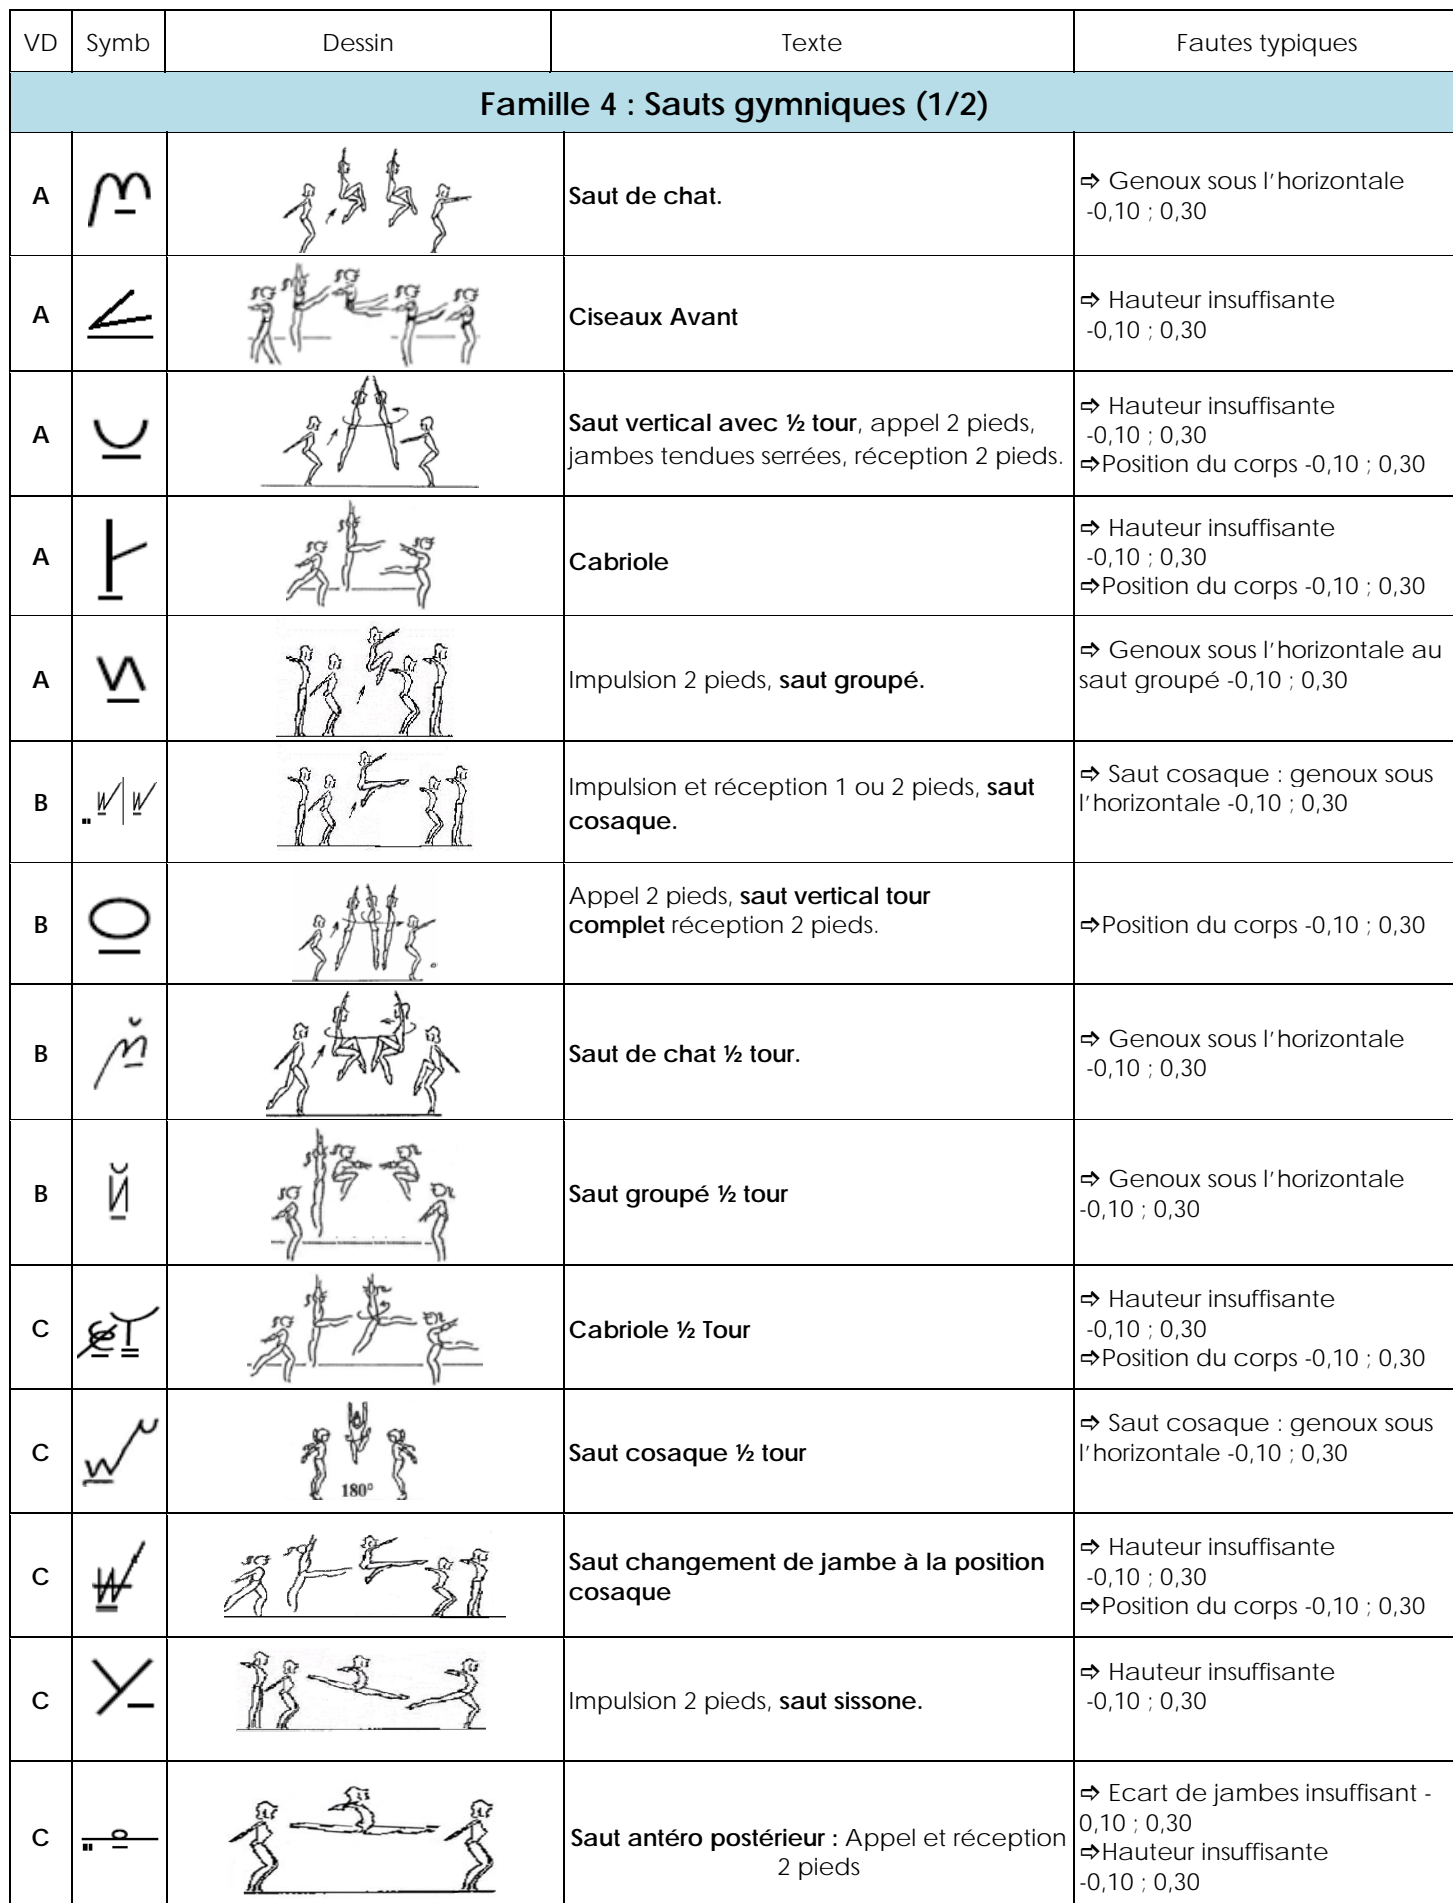 VD Symb Dessin Texte Fautes typiques
Famille 4 : Sauts gymniques (1/2)
A
Saut de chat.
⇨ Genoux sous l'horizontale
-0,10 ; 0,30
A
Ciseaux Avant
⇨ Hauteur insuffisante
-0,10 ; 0,30
A
Saut vertical avec ½ tour, appel 2 pieds,
jambes tendues serrées, réception 2 pieds.
⇨ Hauteur insuffisante
-0,10 ; 0,30
⇨Position du corps -0,10 ; 0,30
A
Cabriole
⇨ Hauteur insuffisante
-0,10 ; 0,30
⇨Position du corps -0,10 ; 0,30
A
Impulsion 2 pieds, saut groupé.
⇨ Genoux sous l'horizontale au
saut groupé -0,10 ; 0,30
B
Impulsion et réception 1 ou 2 pieds, saut
cosaque.
⇨ Saut cosaque : genoux sous
l'horizontale -0,10 ; 0,30
B
Appel 2 pieds, saut vertical tour
complet réception 2 pieds.
⇨Position du corps -0,10 ; 0,30
B
Saut de chat ½ tour.
⇨ Genoux sous l'horizontale
-0,10 ; 0,30
B
Saut groupé ½ tour
⇨ Genoux sous l'horizontale
-0,10 ; 0,30
C
Cabriole ½ Tour
⇨ Hauteur insuffisante
-0,10 ; 0,30
⇨Position du corps -0,10 ; 0,30
C
180°
Saut cosaque ½ tour
⇨ Saut cosaque : genoux sous
l'horizontale -0,10 ; 0,30
C
Saut changement de jambe à la position
cosaque
⇨ Hauteur insuffisante
-0,10 ; 0,30
⇨Position du corps -0,10 ; 0,30
C
Impulsion 2 pieds, saut sissone.
⇨ Hauteur insuffisante
-0,10 ; 0,30
C
Saut antéro postérieur : Appel et réception
2 pieds
⇨ Ecart de jambes insuffisant -
0,10 ; 0,30
⇨Hauteur insuffisante
-0,10 ; 0,30